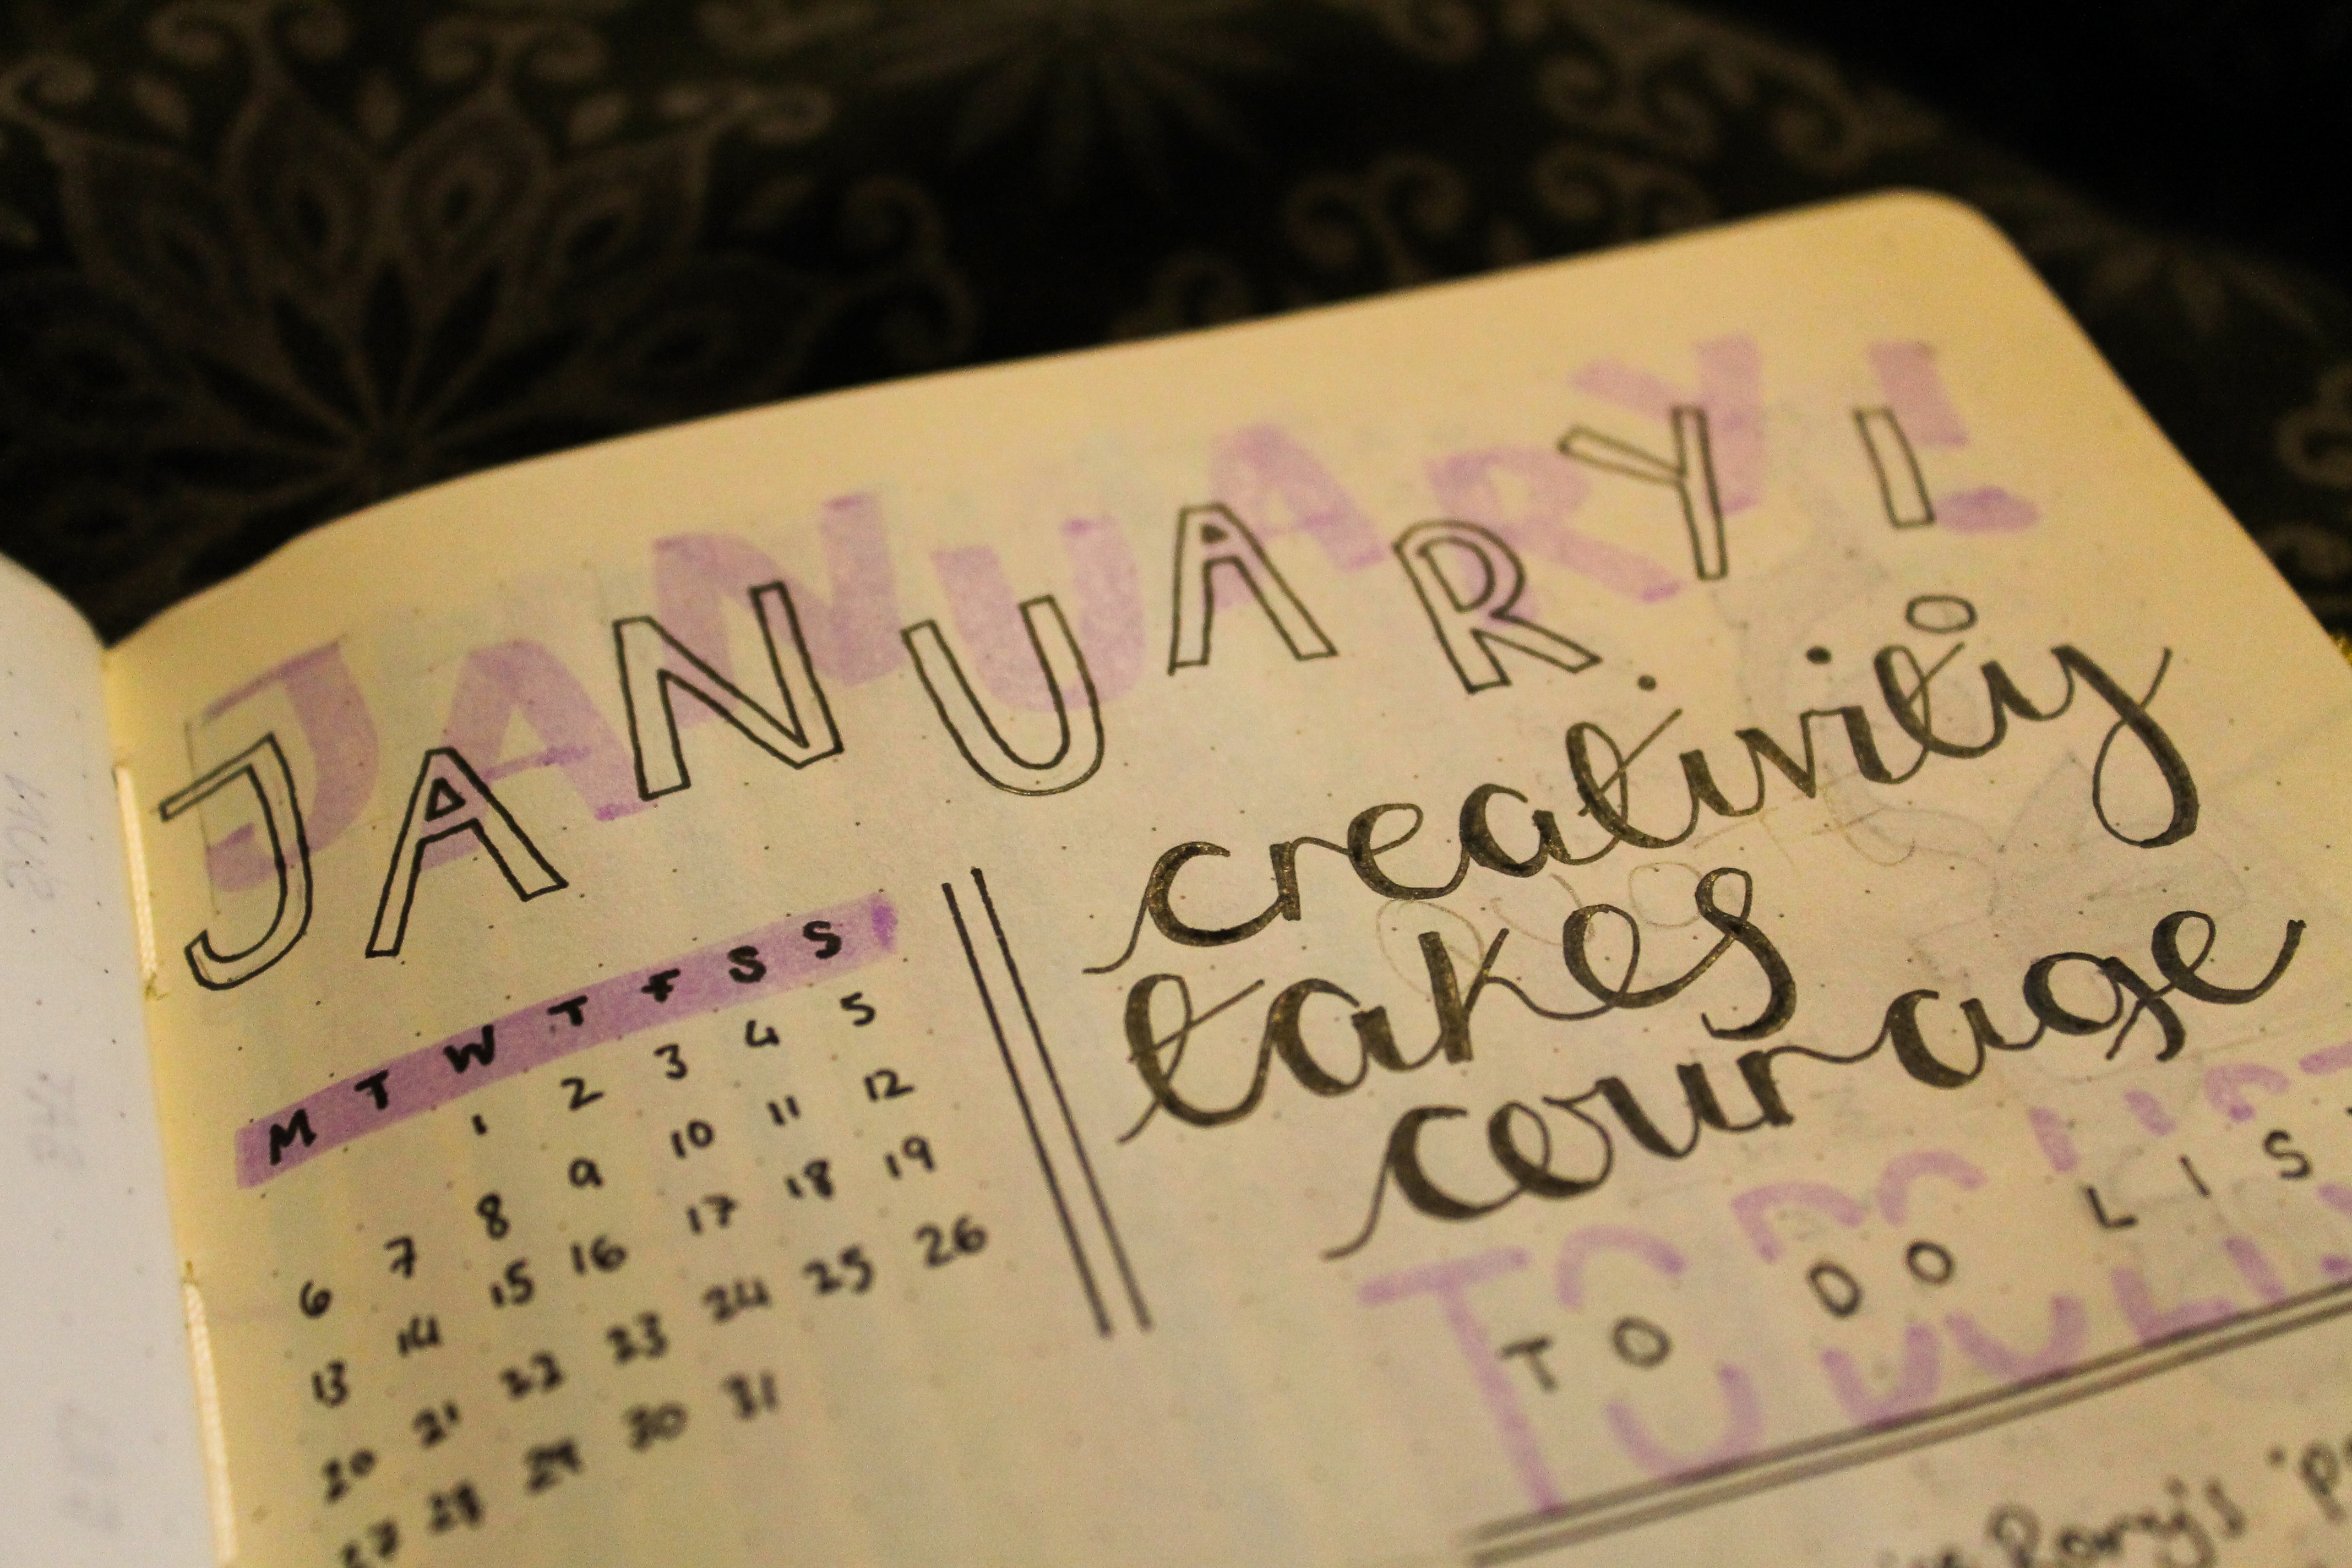 JANUARY!
M T W T F S S
1 2 3 4 5
6 7 8 9 10 11 12
13 14 15 16 17 18 19
20 21 22 23 24 25 26
27 28 29 30 31
creativity
takes
courage
TO DO LIS
Rory's